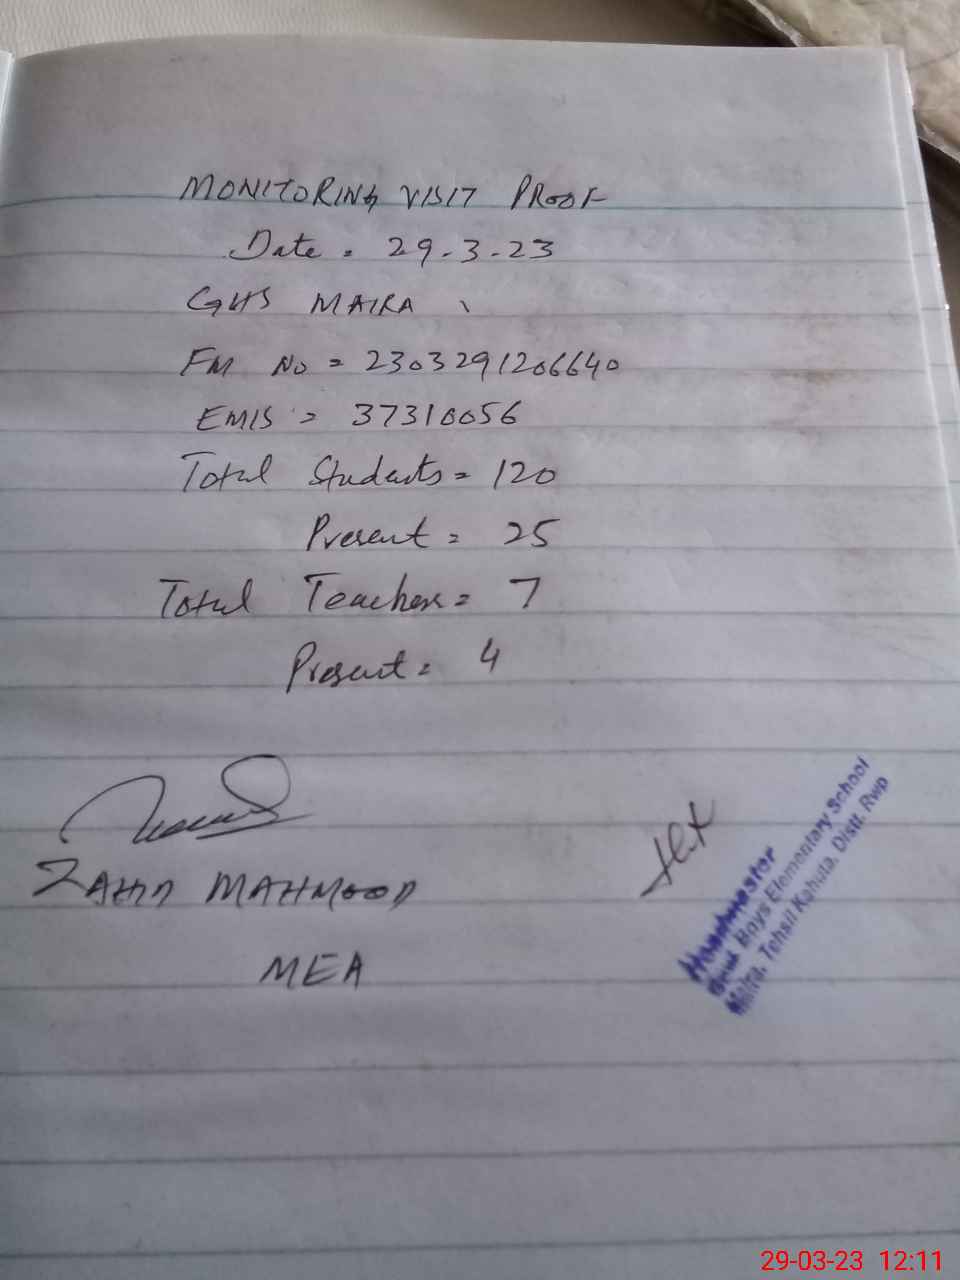 MONITORING VISIT PROOF
Date = 29-3-23
GHS MAIRA
FM No = 2303291206640
EMIS = 37310056
Total Students = 120
Present = 25
Total Teachers = 7
Present = 4
ZAHID MAHMOOD
MEA
Headmaster
Govt Boys Elementary School
Maira, Tehsil Kahuta, Distt. Rwp
29-03-23 12:11